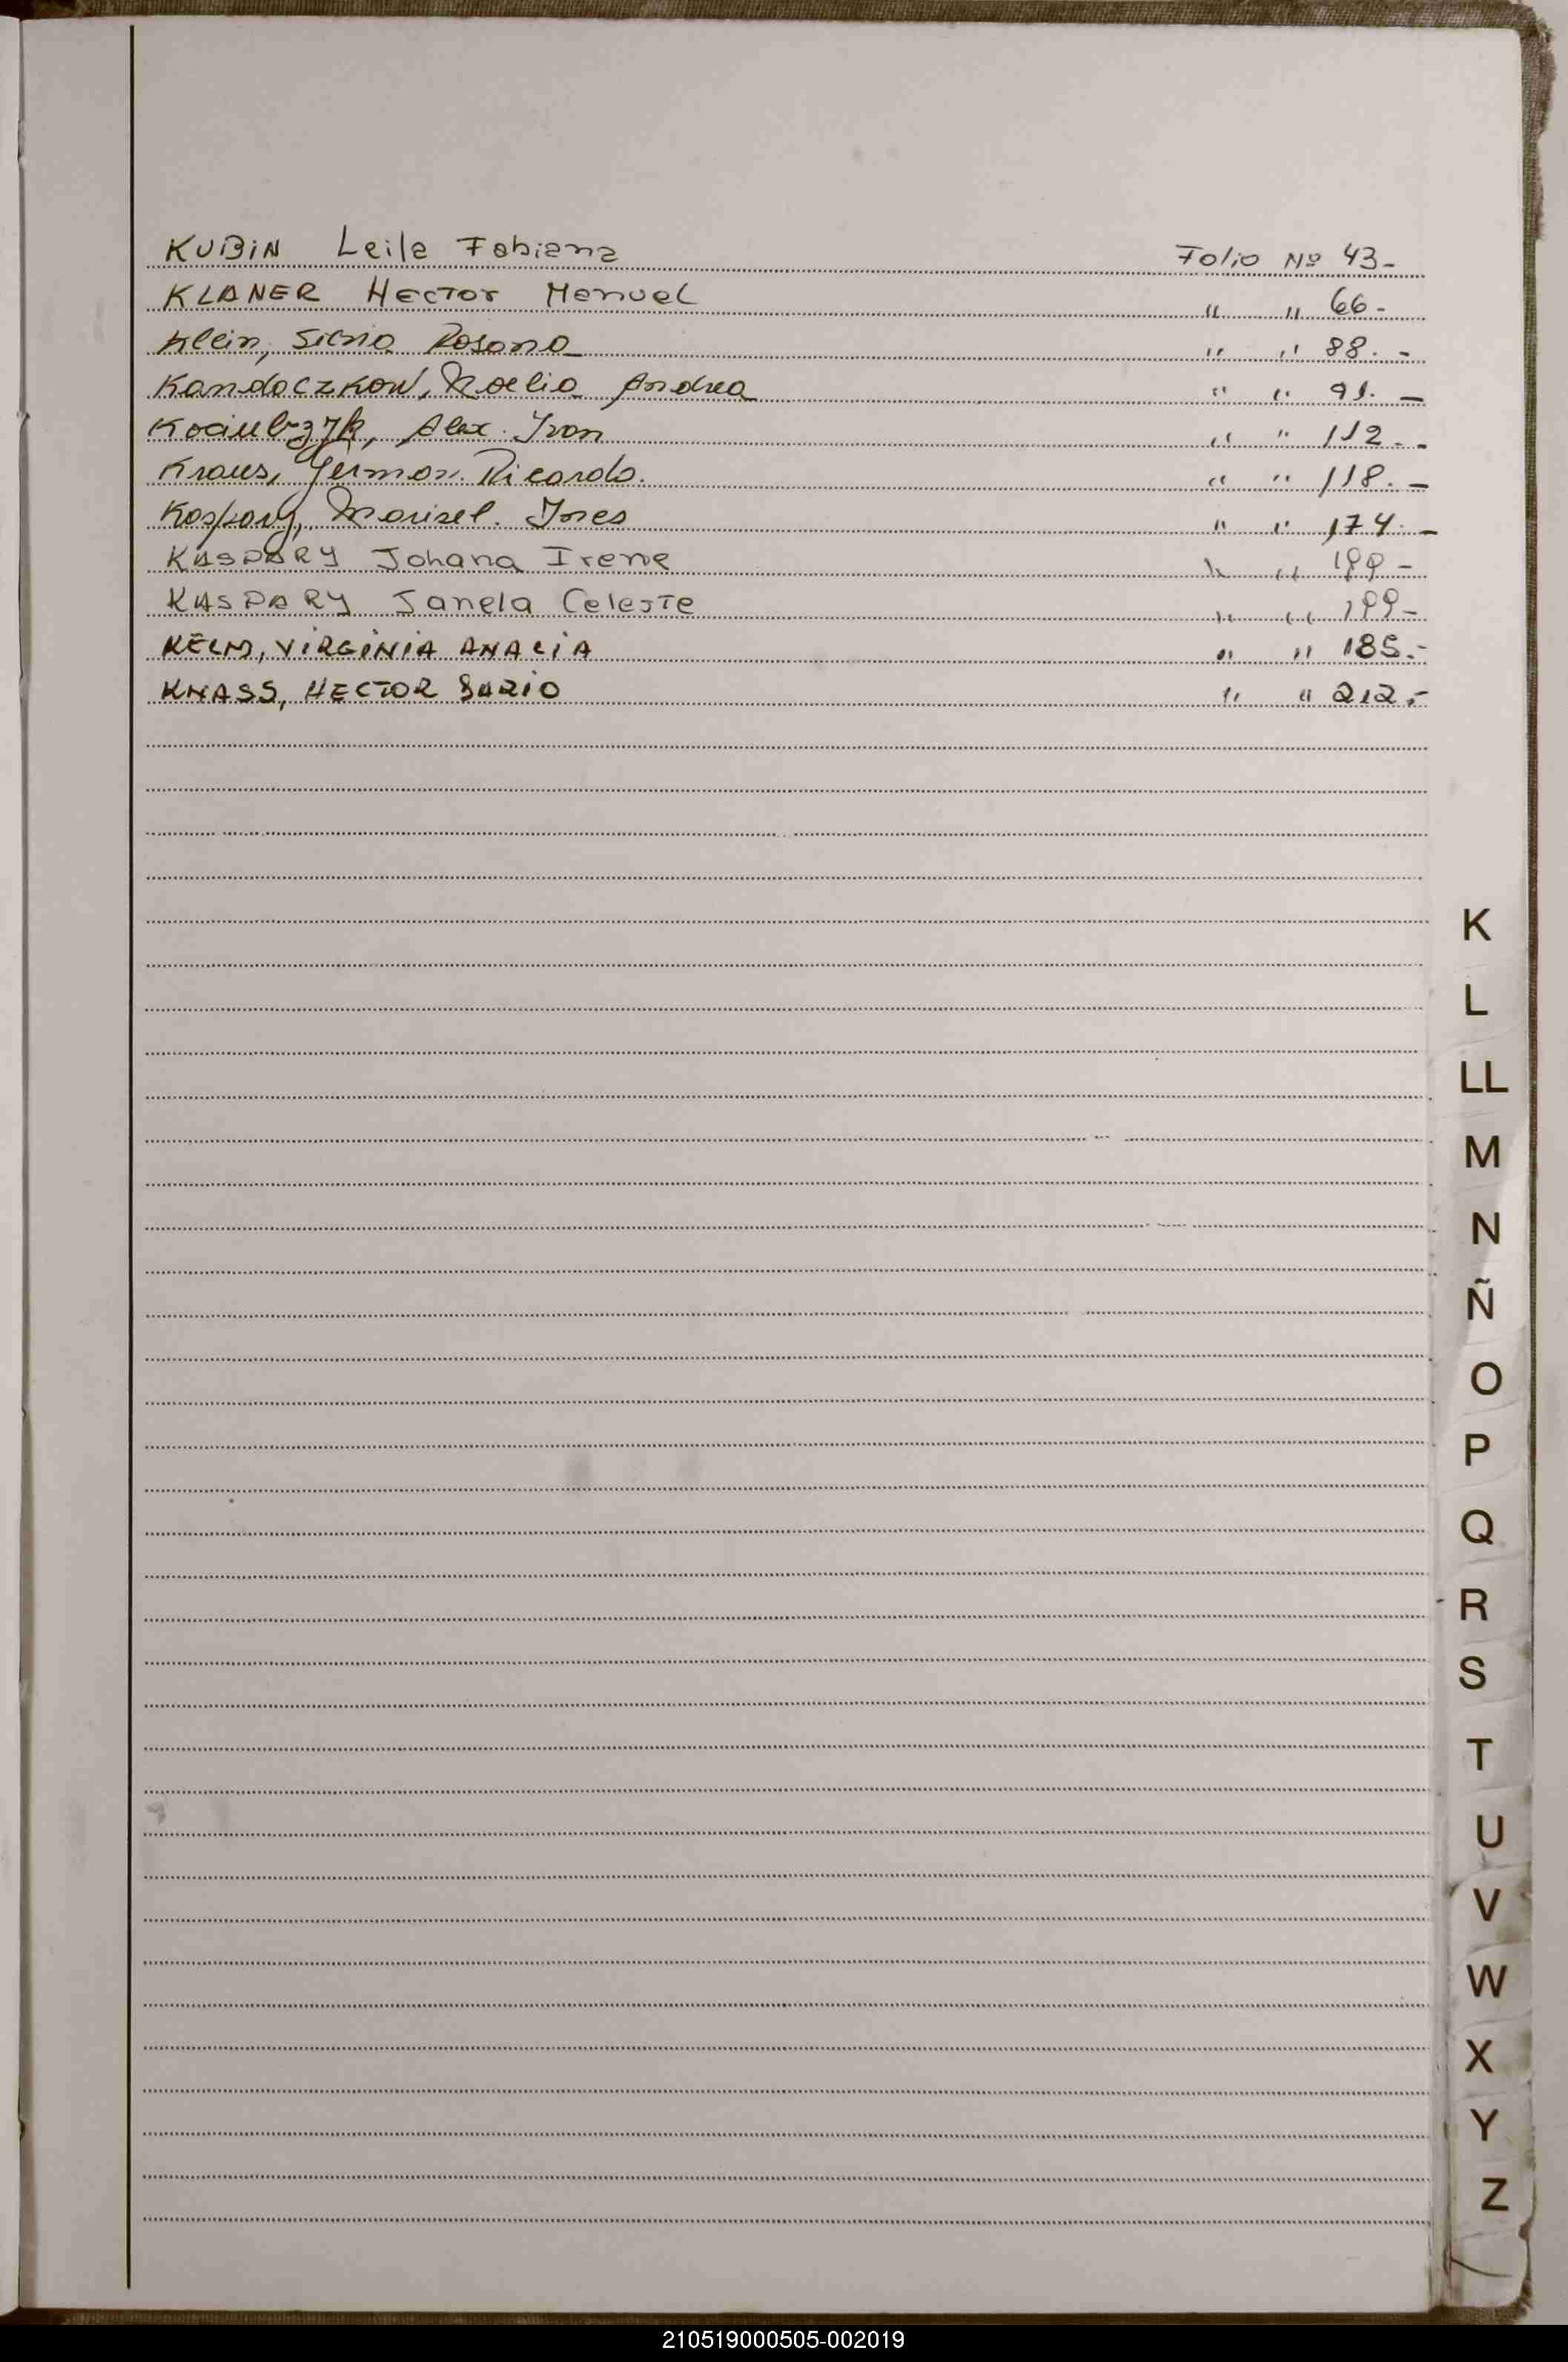 KUBIN Leila Fabiana Folio Nº 43-
KLANER Hector Manuel " " 66-
Klein, Silvia Rosana " " 88.-
Kandaczkow, Noelia Andrea " " 91.-
Alex Ivan " " 112.-
Kraus, German Ricardo. " " 118.-
Kaspary, Marisel Ines " " 174.-
KASPARY Johana Irene " "
KASPARY Janela Celeste " "
KELM, VIRGINIA ANALIA " " 185.-
KNASS, HECTOR DARIO " " 212.-
K
L
LL
M
N
Ñ
O
P
Q
R
S
T
U
V
W
X
Y
Z
210519000505-002019